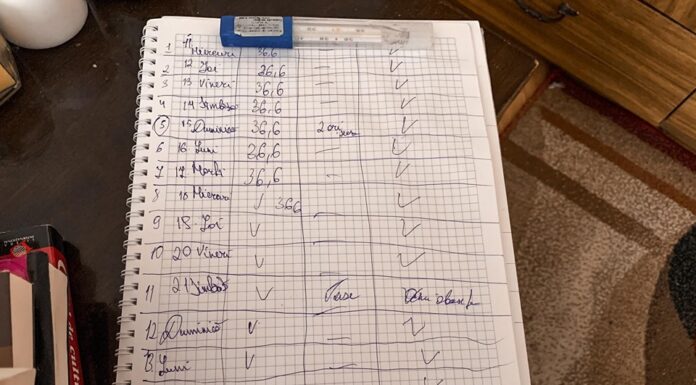 1 11 Miercuri 36,6 ✓
2 12 Joi 36,6 — ✓
3 13 Vineri 36,6 — ✓
4 14 Sâmbăta 36,6 — ✓
5 15 Duminică 36,6 2 ✓
6 16 Luni 36,6 — ✓
7 17 Marți 36,6 - ✓
8 18 Miercuri ✓ 36,6 ✓
9 19 Joi ✓ — ✓
10 20 Vineri ✓ — ✓
11 21 Sâmbătă ✓ Tuse
12 Duminică ✓ — ✓
13 Luni ✓ — ✓